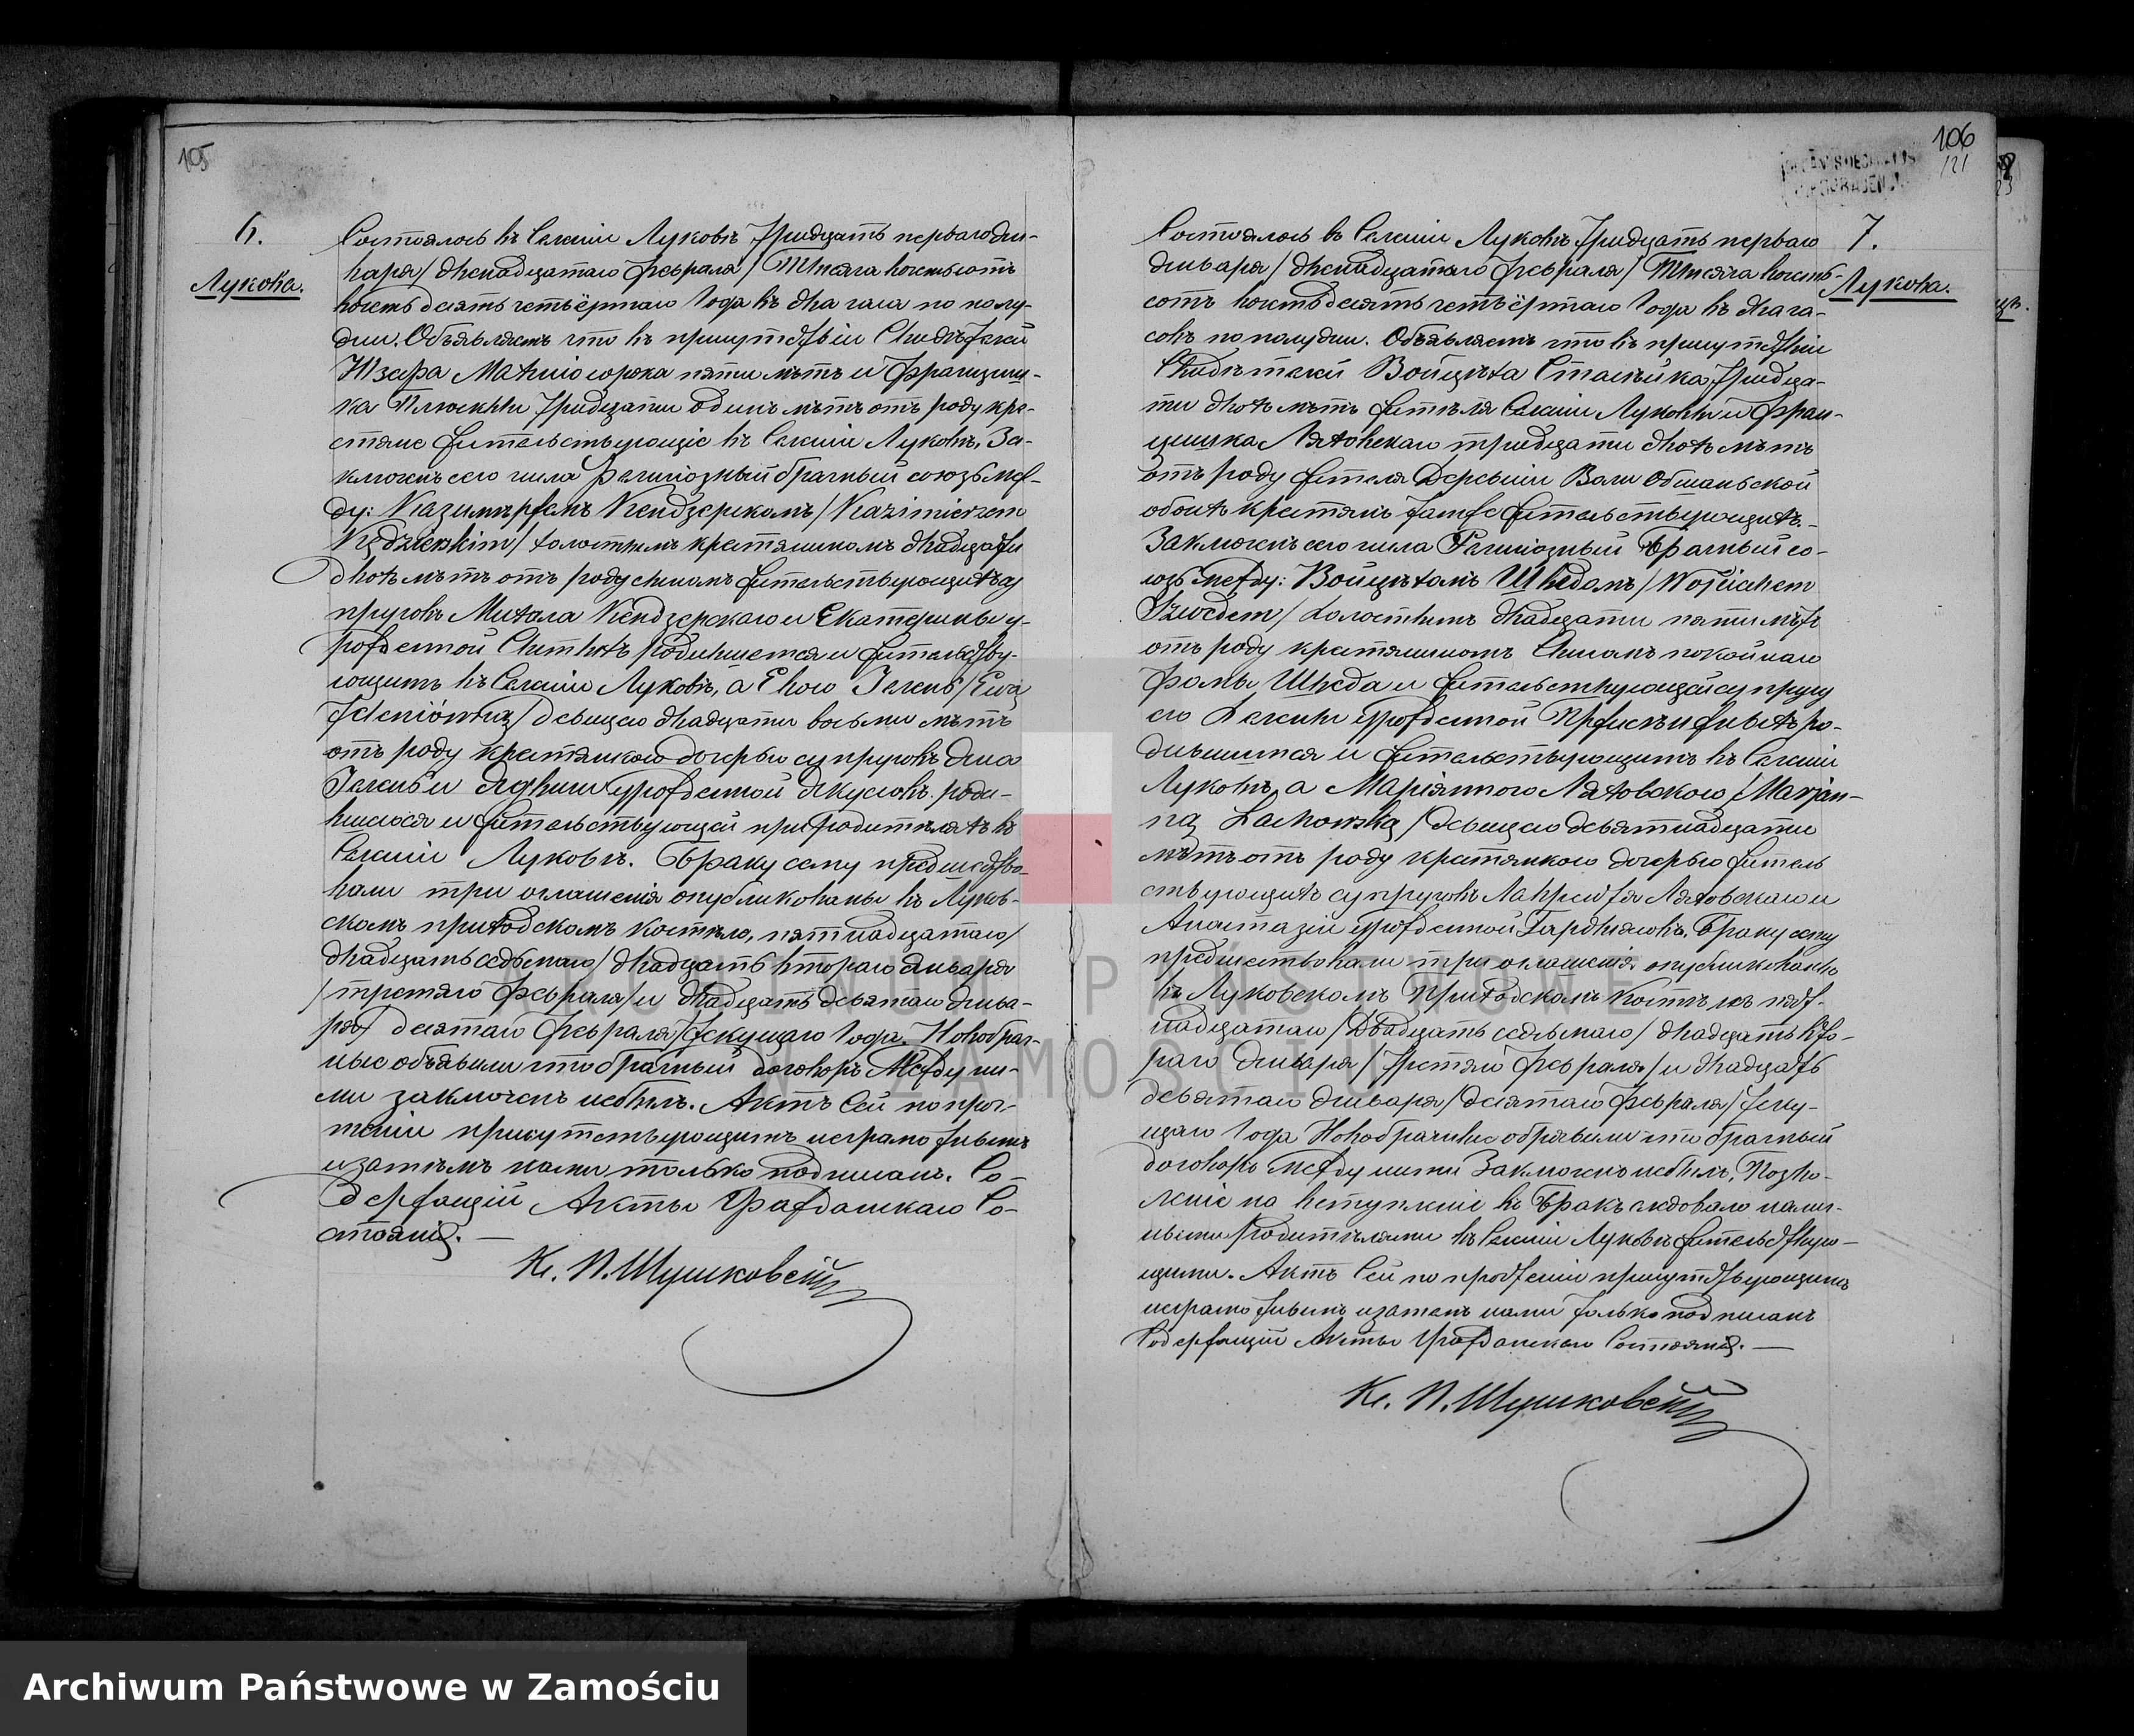 105
6.
Лукова.
Состоялось въ Селеніи Луковѣ тридцать перваго Ян-
варя / двенадцатаго Февраля / Тысяча восемьсотъ
восемьдесятъ четвёртаго Года въ два часа по полу-
дни. Объявляемъ что въ присутствіи Свидѣтелей
Юзефа Махно сорока пяти лѣтъ и Францишь-
ка Плюсквы тридцати одинъ лѣтъ отъ роду кре-
стяне жительствующіе въ Селеніи Луковѣ, За-
ключенъ сего числа Религіозный брачный союзъ меж-
ду: Казимѣржемъ Кендзерскимъ / Kazimierzem
Kędzierskim / холостымъ крестяниномъ двадцати
двохъ лѣтъ отъ роду сыномъ жительствующихъ су
пруговъ Михала Кендзерскаго и Екатерины у-
рожденной родившемся и жительству-
ющимъ въ Селеніи Луковѣ, а Евою Іелень / Ewą
Jeleniówną / девицею двадцати восьми лѣтъ
отъ роду крестянкою дочерью супруговъ Яна
Іелень и Ядвиги урожденной роди-
вшеюся и жительствующей при родителяхъ въ
Селеніи Луковѣ. Браку сему предшедство-
вали три оглашенія опубликованы въ Луков-
скомъ приходскомъ костѣлѣ, пятнадцатаго /
двадцать седьмаго / двадцать втораго Января
/ третяго Февраля / и двадцать девятаго Янва-
ря / десятаго Февраля / текущаго Года. Новобрач-
ные объявили что брачный договоръ Между ни-
ми заключенъ небылъ. Актъ Сей по проч-
теніи присутствующимъ неграмотнымъ
и затѣмъ нами только подписанъ. Со-
держащій Акты Гражданскаго Со-
стоянія. —
Кс. П. Шушковскій
106
121
7.
Лукова.
Состоялось въ Селеніи Луковѣ Тридцать перваго
Января / двенадцатаго Февраля / Тысяча восемь-
сотъ восемьдесятъ четвёртаго Года въ два ча-
совъ по полудни. Объявляемъ что въ присутствіи
Свидѣтелей Войцѣха тридца-
ти двохъ лѣтъ жителя Селеніи Луковы и Фран-
цишка Ляховскаго тридцати двохъ лѣтъ
отъ роду жителя Деревни Воли Обшаньской
обоихъ крестянъ тамже жительствующихъ.
Заключенъ сего числа Религіозный Брачный со-
юзъ Между: Войцѣхомъ Шведомъ / Wojciechem
Szwedem / холостымъ двадцати пяти лѣтъ
отъ роду крестяниномъ Сыномъ покойнаго
Фомы Шведа и жительствующей супруги
его урожденной ро-
дившимся и жительствующимъ въ Селеніи
Луковѣ, а Маріянною Ляховскою / Marjan-
ną Lachowską / девицею девятнадцати
лѣтъ отъ роду крестянкою дочерью житель
ствующихъ супруговъ Ляховскаго и
Анастазіи урожденной Браку сему
предшествовали три оглашенія опубликованы
въ Луковскомъ Приходскомъ Костѣлѣ пят-
надцатаго / Двадцать седьмаго / двадцать вто-
раго Января / третяго Февраля / и двадцать
девятаго Января / десятаго Февраля / теку-
щаго Года Новобрачные объявили что брачный
договоръ между ними Заключенъ небылъ. Позво-
леніе на вступленіе въ Бракъ следовало налич-
ными Родителями въ Селеніи Луковѣ жительствую-
щими. Актъ Сей по прочтеніи присутствующимъ
неграмотнымъ и затемъ нами только подписанъ
Содержащій Акты Гражданскаго Состоянія. —
Кс. П. Шушковскій
ARCHIWUM PAŃSTWOWE
W ZAMOŚCIU
Archiwum Państwowe w Zamościu